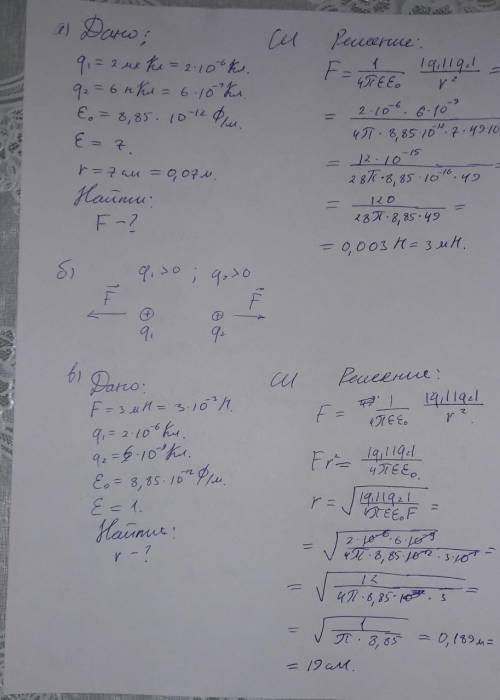 а) Дано:
q₁ = 2 мкКл = 2·10⁻⁶ Кл.
q₂ = 6 нКл = 6·10⁻⁹ Кл.
ε₀ = 8,85·10⁻¹² Ф/м.
ε = 7.
r = 7 см = 0,07 м.
Найти:
F - ?
СИ Решение:
F = 1/4πεε₀ |q₁||q₂|/r² =
= 2·10⁻⁶·6·10⁻⁹/4π·8,85·10⁻¹²·7·49·10
= 12·10⁻¹⁵/28π·8,85·10⁻¹⁶·49 =
= 120/28π·8,85·49 =
= 0,003 Н = 3 мН.
б) q₁>0 ; q₂>0
F F
+ +
q₁ q₂
в) Дано:
F = 3 мН = 3·10⁻³ Н.
q₁ = 2·10⁻⁶ Кл.
q₂ = 6·10⁻⁹ Кл.
ε₀ = 8,85·10⁻¹² Ф/м.
ε = 1.
Найти:
r - ?
СИ Решение:
F = 1/4πεε₀ |q₁||q₂|/r².
Fr² = |q₁||q₂|/4πεε₀.
r = √(|q₁||q₂|/4πεε₀F) =
= √(2·10⁻⁶·6·10⁻⁹/4π·8,85·10⁻¹²·3·10⁻³) =
= √(12/4π·8,85·3) =
= √(1/π·8,85) = 0,189 м =
= 19 см.